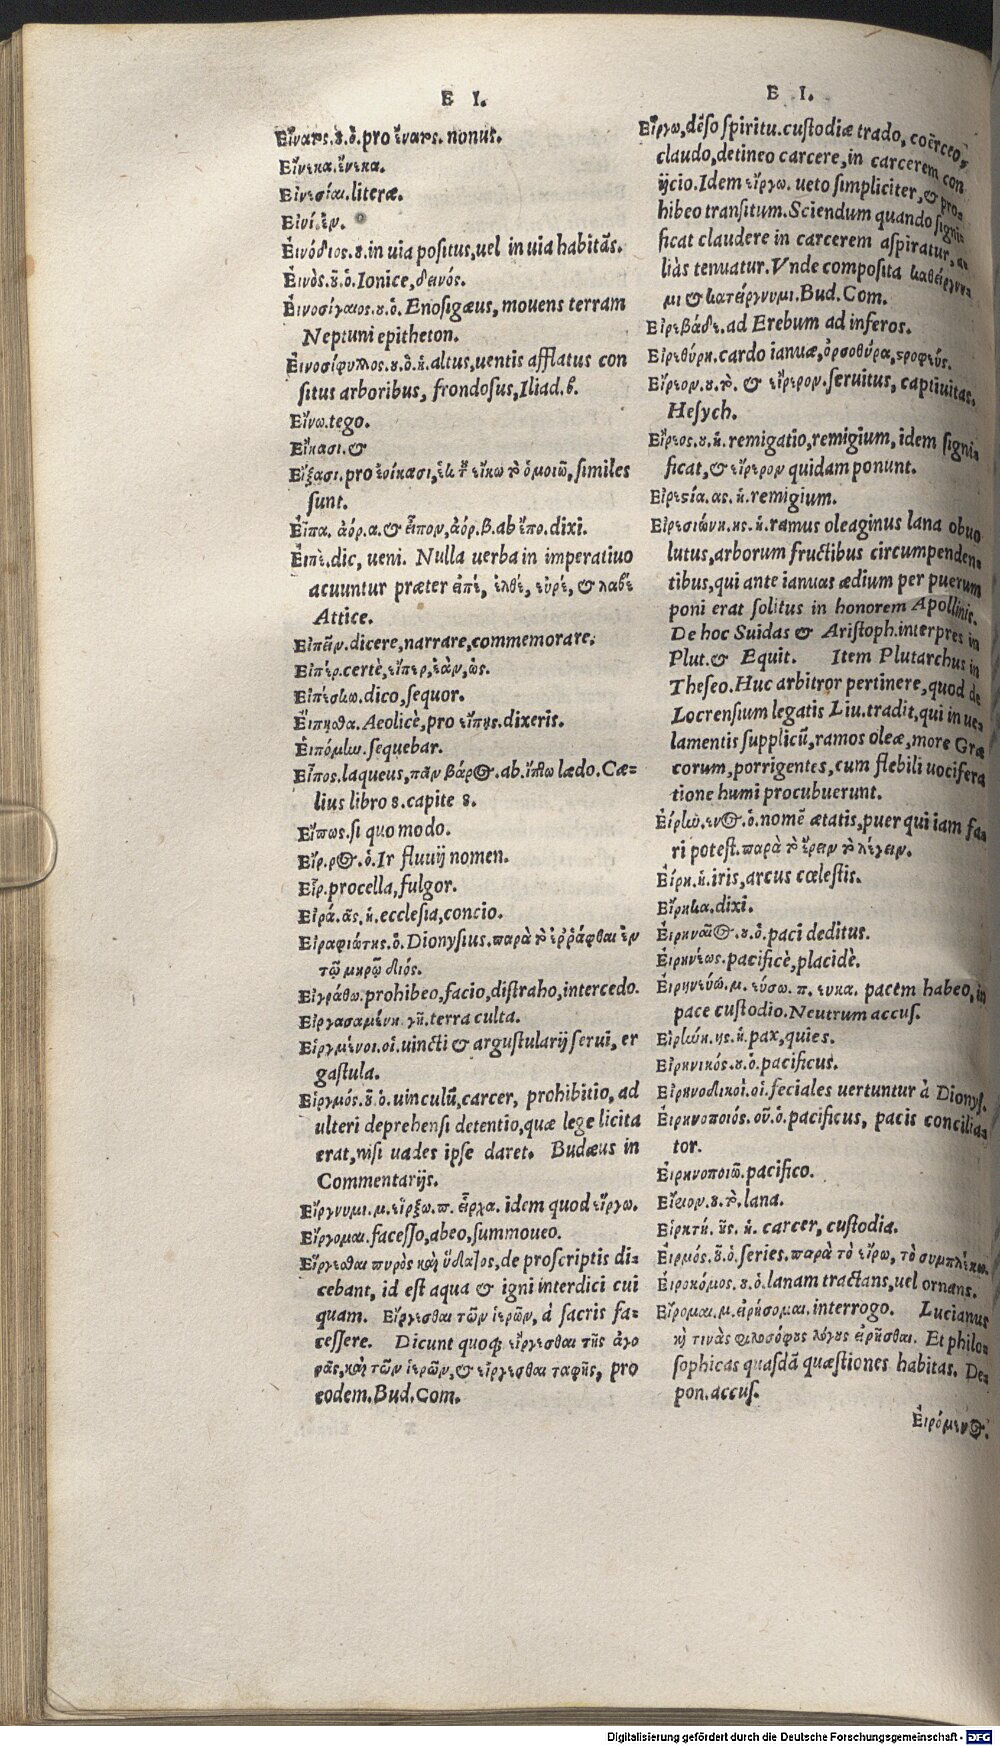 E I.
Εἴνατς.ȣ.ὁ.pro ἔνατς. nonus.
Εἵνεκα.ἕνεκα.
Εἰνεσίαι.literæ.
Εἰνί.ἐν.
Εἰνόδιος.ȣ.in uia positus,uel in uia habitãs.
Εἰνὸς.ȣ̃.ὁ.Ionice,δεινός.
Εἰνοσίγαιος.ȣ.ὁ. Enosigæus, mouens terram
Neptuni epitheton.
Εἰνοσίφυλλος.ȣ.ὁ.ἡ.altus,uentis afflatus con
situs arboribus, frondosus,Iliad.β.
Εἴνω.tego.
Εἴκασι.&
Εἴξασι.pro ἐοίκασι,ἐκ τ͂ εἴκω τὸ ὁμοιῶ,similes
sunt.
Εἶπα. ἀόρ.α.& εἶπον,ἀόρ.β.ab ἔπο.dixi.
Εἰπὲ.dic, ueni. Nulla uerba in imperatiuo
acuuntur præter εἰπέ, ἐλθέ, εὑρέ, & λαβέ
Attice.
Εἰπεῖν.dicere,narrare,commemorare.
Εἰπέρ.certè,εἴπερ,ἐὰν,ὡς.
Εἰπέσκω.dico,sequor.
Εἴπηοθα.Aeolicè,pro εἴπῃς.dixeris.
Εἰπόμlω.sequebar.
Εἶπος.laqueus,πᾶν βάρος.ab.ἴπlω lædo.Cæ-
lius libro 8.capite 8.
Εἴπως.si quo modo.
Εἴρ.ρος.ὁ.Ir fluuij nomen.
Εἶρ.procella,fulgor.
Εἰρά.ᾶς.ἡ.ecclesia,concio.
Εἰραφιώτης.ὁ.Dionysius.παρὰ τὸ ἐῤῥάφθαι ἐν
τῷ μηρῷ διός.
Εἰργάθω.prohibeo,facio,distraho,intercedo.
Εἰργασαμένη γῆ.terra culta.
Εἰργμένοι.οἱ.uincti & argustularij serui, er
gastula.
Εἰργμός.ȣ̃.ὁ.uinculũ,carcer, prohibitio, ad
ulteri deprehensi detentio,quæ lege licita
erat,nisi uades ipse daret. Budæus in
Commentarijs.
Εἴργνυμι.μ.εἵρξω.π. εἶρχα. idem quod εἴργω.
Εἴργομαι.facesso,abeo,summoueo.
Εἴργεσθαι πυρὸς καὶ ὕδατος,de proscriptis di-
cebant, id est aqua & igni interdici cui
quam. Εἴργεσθαι τῶν ἱερῶν, à sacris fa-
cessere. Dicunt quoq; εἴργεσθαι τῆς ἀγο
ρᾶς,καὶ τῶν ἱερῶν,& εἴργεσθαι ταφῆς, pro
eodem.Bud.Com.
E I.
Εἵργω,dēso spiritu.custodiæ trado, coērceo,
claudo,detineo carcere,in carcerem con
ijcio.Idem εἴργω. ueto simpliciter,& pro-
hibeo transitum.Sciendum quando signi-
ficat claudere in carcerem aspiratur, a-
liàs tenuatur.Vnde composita καθείργνυ-
μι & κατείργνυμι.Bud.Com.
Εἰρεβάδε.ad Erebum ad inferos.
Εἰρεθύρη.cardo ianuæ,ὀρσοθύρα,ςροφεύς.
Εἴρεον.ȣ.τὸ. & εἴρερον.seruitus, captiuitas.
Hesych.
Εἴρεος.ȣ.ἡ. remigatio,remigium, idem signi-
ficat,& εἴρερον quidam ponunt.
Εἰρεσία.ας.ἡ.remigium.
Εἰρεσιώνη.ης.ἡ.ramus oleaginus lana obuo
lutus,arborum fructibus circumpenden-
tibus,qui ante ianuas ædium per puerum
poni erat solitus in honorem Apollinis.
De hoc Suidas & Aristoph.interpres in
Plut.& Equit. Item Plutarchus in
Theseo.Huc arbitror pertinere,quod de
Locrensium legatis Liu.tradit,qui in ue-
lamentis supplicũ,ramos oleæ,more Græ
corum,porrigentes,cum flebili uocifera
tione humi procubuerunt.
Εἴρlω.ενος.ὁ.nomē ætatis,puer qui iam fa-
ri potest.παρὰ τὸ ἔρειν τὸ λέγειν.
Εἴρη.ἡ.iris,arcus cœlestis.
Εἴρηκα.dixi.
Εἰρηναῖος.ȣ.ὁ.paci deditus.
Εἰρηνέως.pacificè,placidè.
Εἰρηνεύω.μ. εύσω. π. ευκα. pacem habeo,in
pace custodio.Neutrum accus.
Εἰρlώη.ης.ἡ.pax,quies.
Εἰρηνικός.ȣ.ὁ.pacificus.
Εἰρηνοδικοὶ.οἱ.feciales uertuntur à Dionys.
Εἰρηνοποιός.οῦ.ὁ.pacificus, pacis concilia-
tor.
Εἰρηνοποιῶ.pacifico.
Εἴριον.ȣ.τὸ.lana.
Εἱρκτή. ῆς. ἡ. carcer, custodia.
Εἱρμός.ȣ̃.ὁ.series.παρὰ τὸ εἴρω, τὸ συμπλέκω.
Εἰροκόμος.ȣ.ὁ.lanam tractans,uel ornans.
Εἴρομαι.μ.εἰρήσομαι.interrogo. Lucianus
καὶ τινὰς φιλοσόφȣς λόγȣς εἰρῆσθαι. Et philo-
sophicas quasdã quæstiones habitas. De-
pon.accus.
Εἰρόμενος.
Digitalisierung gefördert durch die Deutsche Forschungsgemeinschaft - DFG